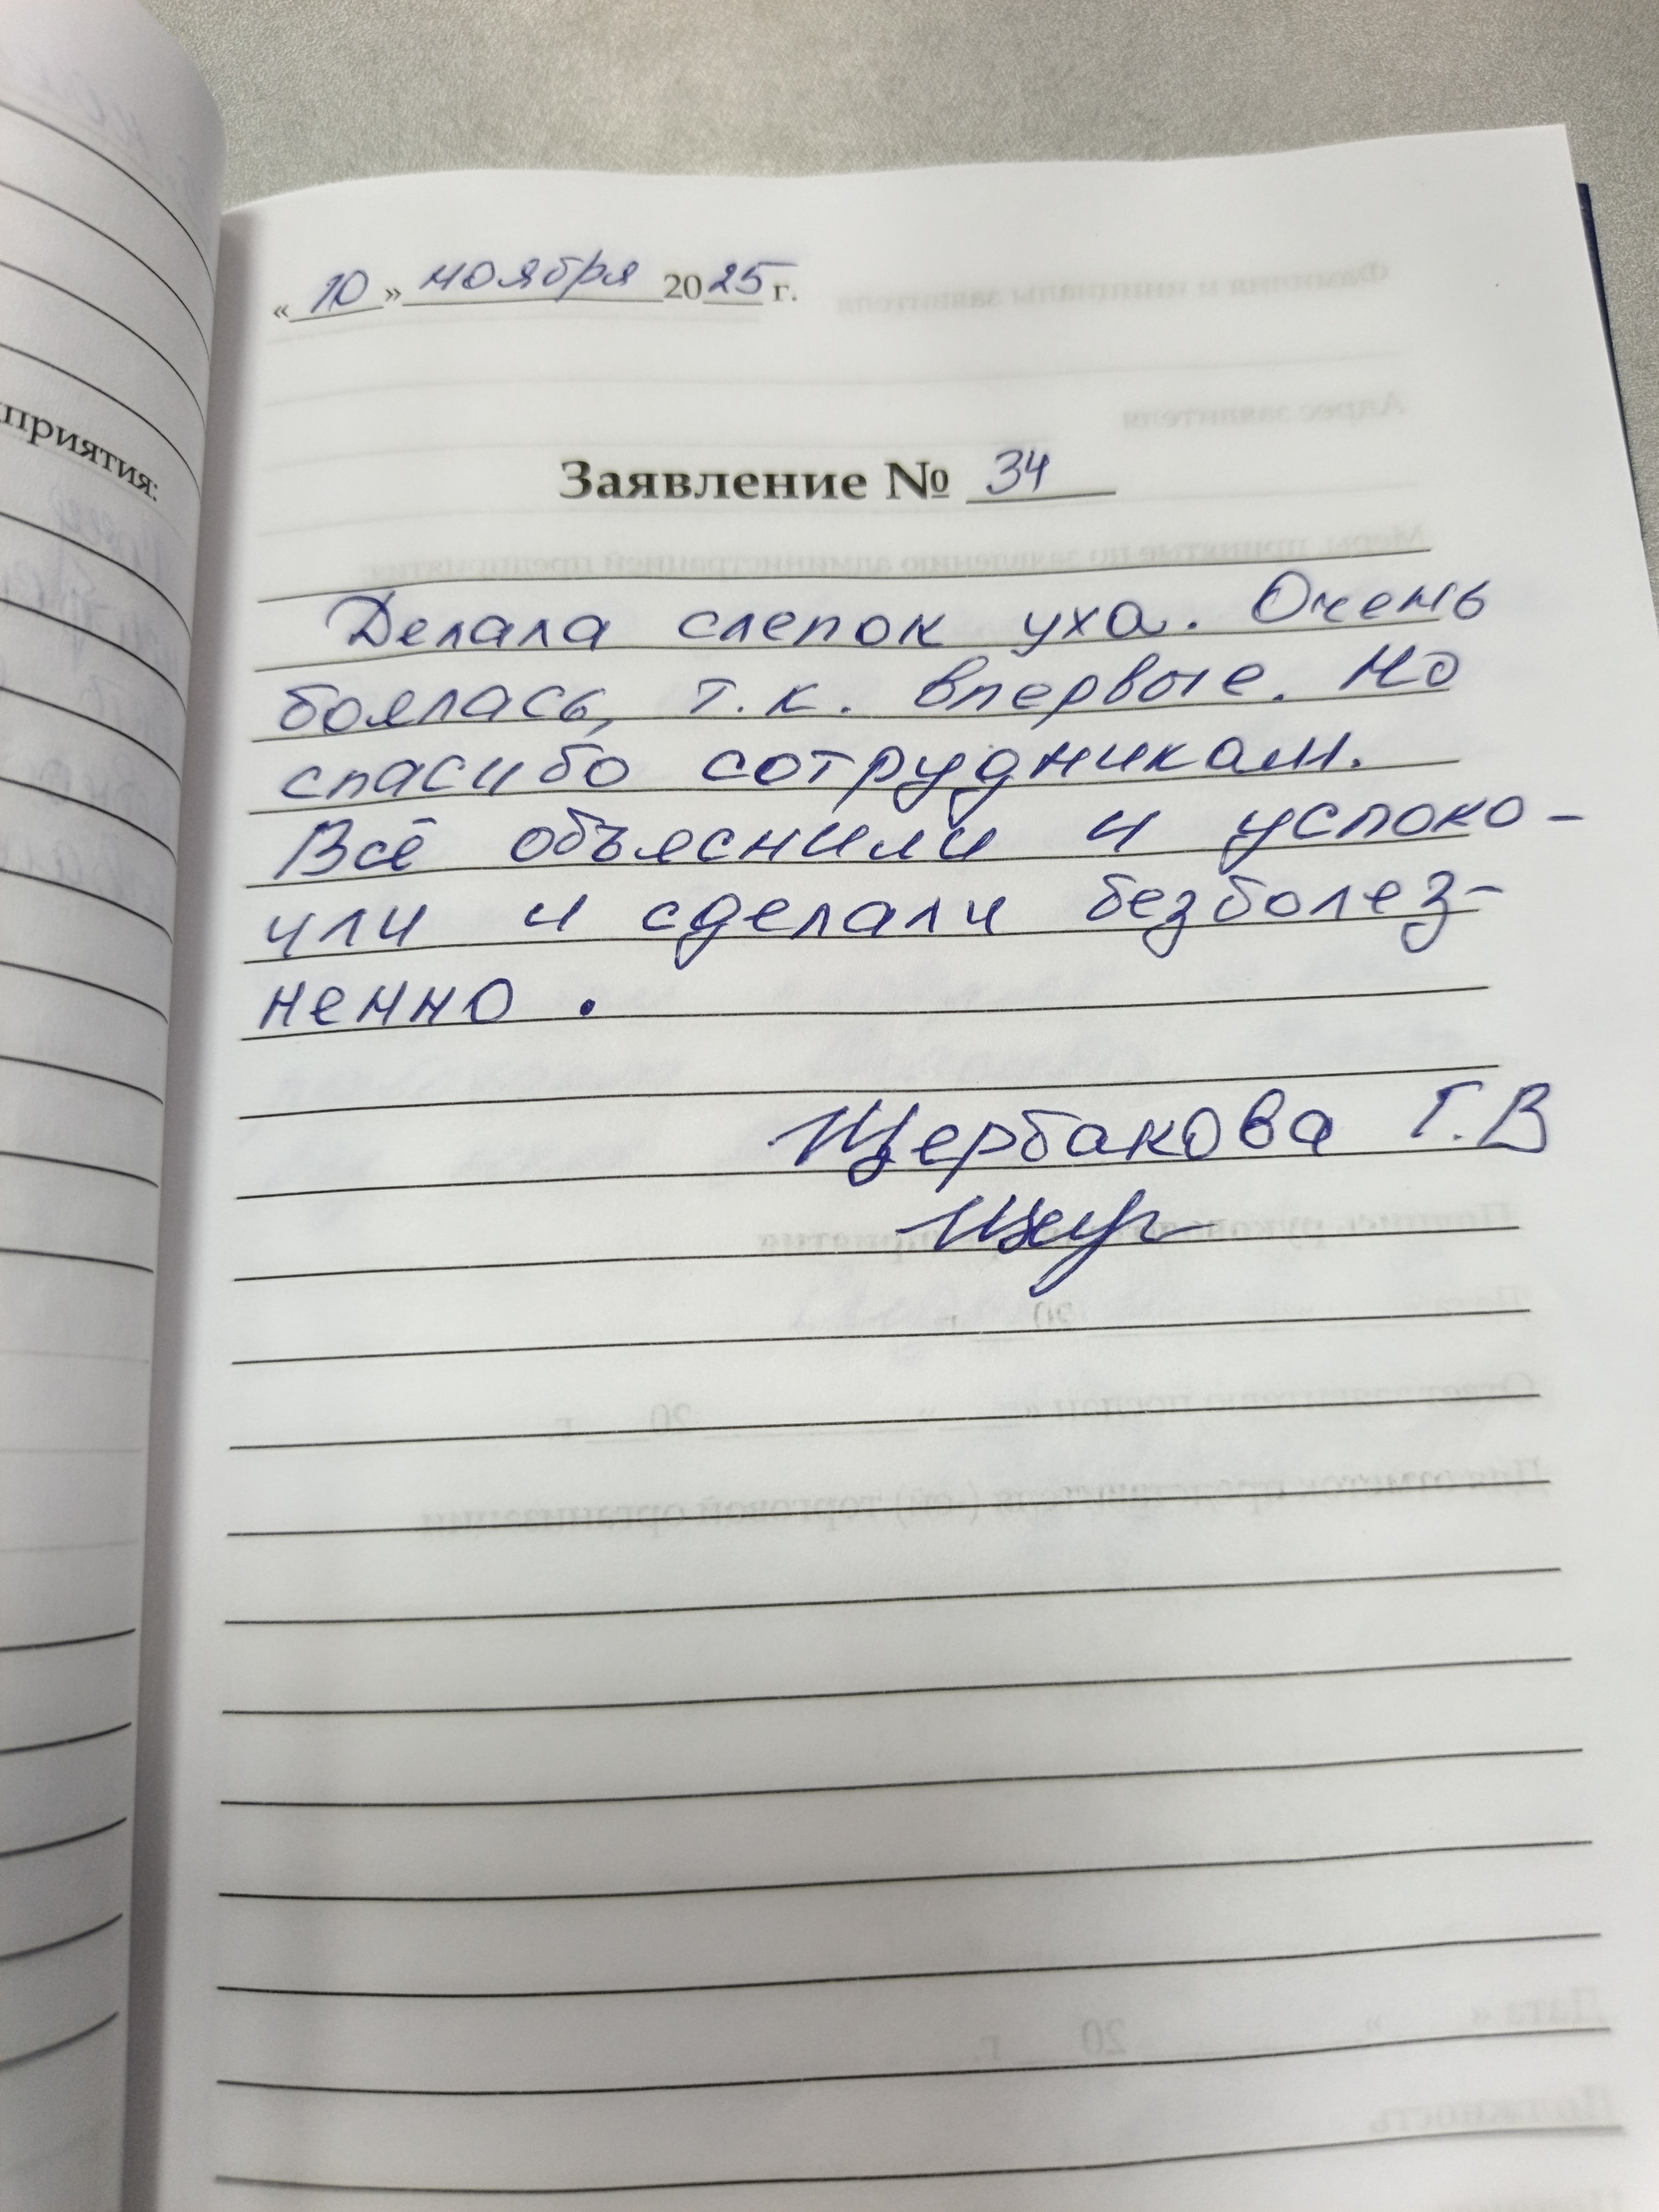 «10» ноября 2025 г.
Заявление № 34
Делала слепок уха. Очень
боялась, т.к. впервые. Но
спасибо сотрудникам.
Всё объяснили и успоко-
или и сделали безболез-
ненно.
Щербакова Г.В
приятия: